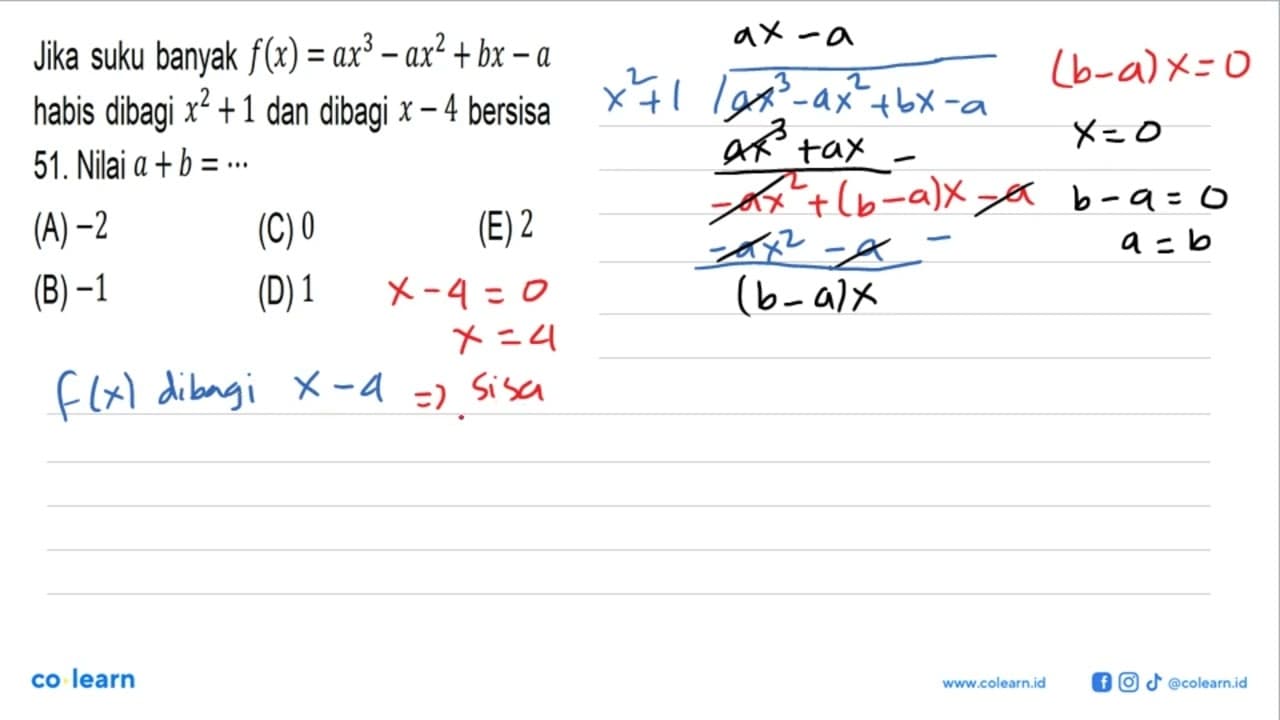 Jika suku banyak f(x) = ax³ – ax² + bx – a
habis dibagi x² + 1 dan dibagi x – 4 bersisa
51. Nilai a + b = ...
(A) –2 (C) 0 (E) 2
(B) –1 (D) 1
x – 4 = 0
x = 4
f(x) dibagi x – 4 => sisa
ax – a
x²+1 / ax³ – ax² + bx – a
ax³ + ax –
–ax² + (b–a)x – a
–ax² – a –
(b – a)x
(b–a)x = 0
x = 0
b – a = 0
a = b
co·learn
www.colearn.id
@colearn.id